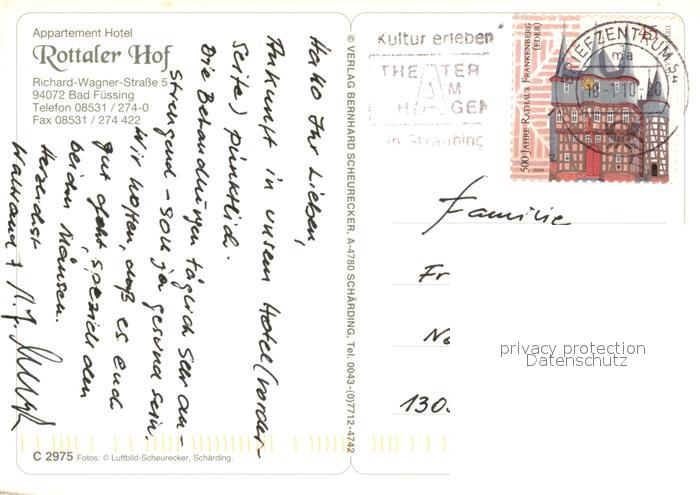 Appartement Hotel
Rottaler Hof
Richard-Wagner-Straße 5
94072 Bad Füssing
Telefon 08531 / 274-0
Fax 08531 / 274 422
Hallo Ihr Lieben,
Ankunft in unserem Hotel (Vorder-
seite) pünktlich.
Die Behandlungen täglich sehr an-
strengend - soll ja gesund sein.
Wir hoffen, daß es euch
gut geht, speziell den
beiden Mäusen.
Herzlichst
Waltraud +
© VERLAG BERNHARD SCHEURECKER, A-4780 SCHÄRDING, Tel. 0043-(0)7712-4742
C 2975 Fotos: © Luftbild-Scheurecker, Schärding.
Kultur erleben
THEATER
AM
HAGEN
in Straubing
500 JAHRE RATHAUS FRANKENBERG
(EDER)
45
2009
BRIEFZENTRUM
ma
Familie
Fr
No
130
privacy protection
Datenschutz